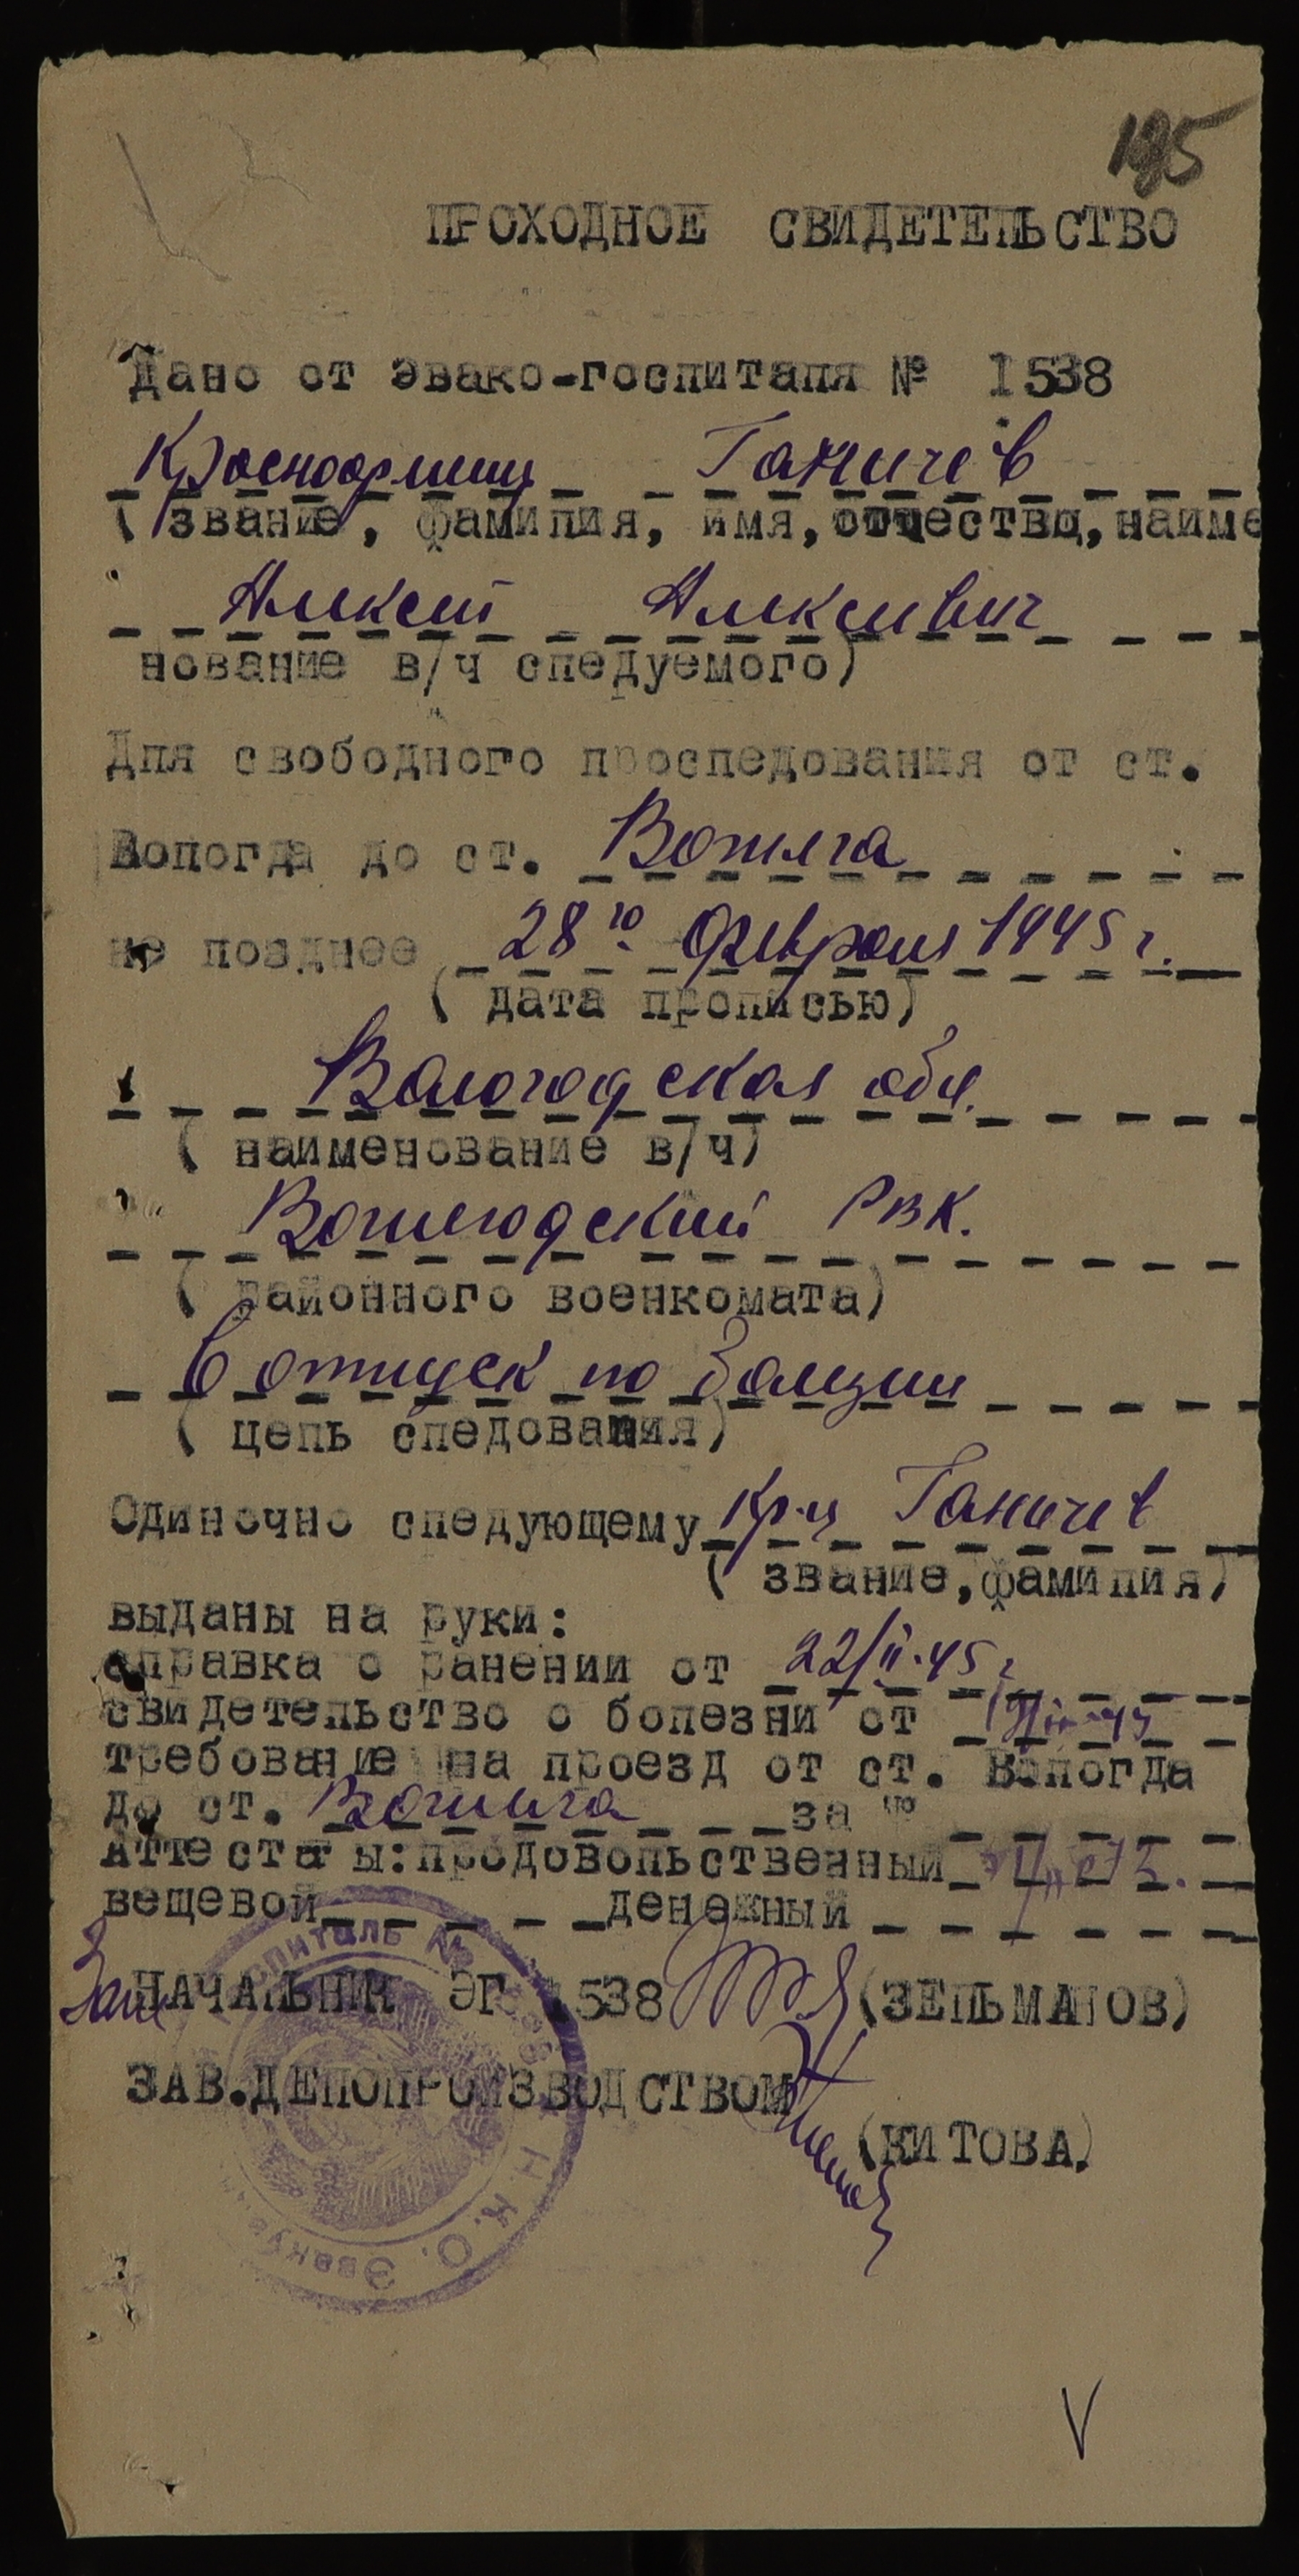 195
ПРОХОДНОЕ СВИДЕТЕЛЬСТВО
Дано от эвако-госпиталя № 1538
Красноармеец Ганичев
(звание, фамилия, имя, отчество, наиме
Алексей Алексеевич
нование в/ч следуемого)
Для свободного проследования от ст.
Вологда до ст. Вожега
не позднее 28го Февраля 1945 г.
(дата прописью)
Вологодская обл.
(наименование в/ч)
Вожегодский РВК.
(районного военкомата)
в отпуск по болезни
(цель следования)
Одиночно следующему кр-ц Ганичев
(звание, фамилия)
выданы на руки:
справка о ранении от 22/II-45 г
свидетельство о болезни от
требование на проезд от ст. Вологда
до ст. Вожега за №
Аттестаты: продовольственный
вещевой денежный
Зам НАЧАЛЬНИК ЭГ 1538 (ЗЕЛЬМАНОВ)
ЗАВ. ДЕЛОПРОИЗВОДСТВОМ
(КИТОВА)
Н.К.О.